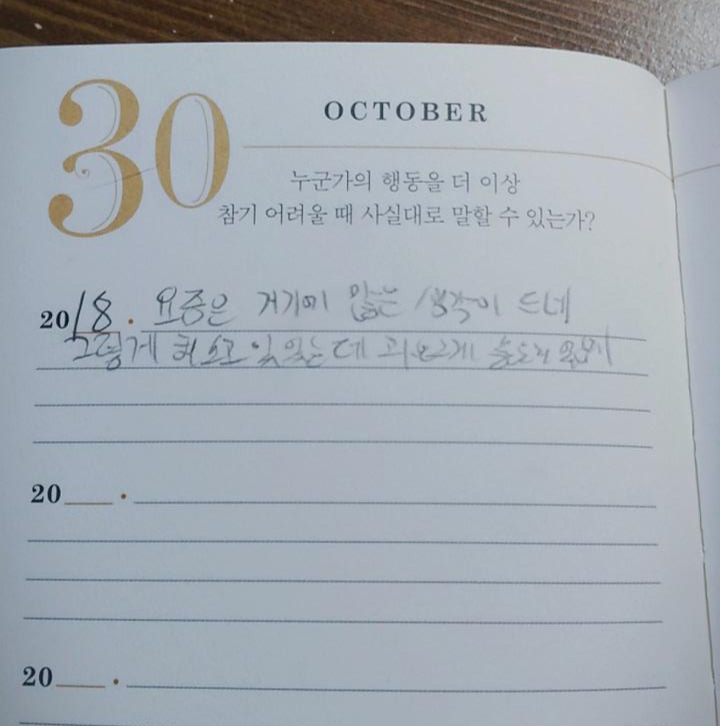 30
OCTOBER
누군가의 행동을 더 이상
참기 어려울 때 사실대로 말할 수 있는가?
2018. 요즘은 거기에 많은 생각이 드네
그렇게 하고 있는데
20 .
20 .